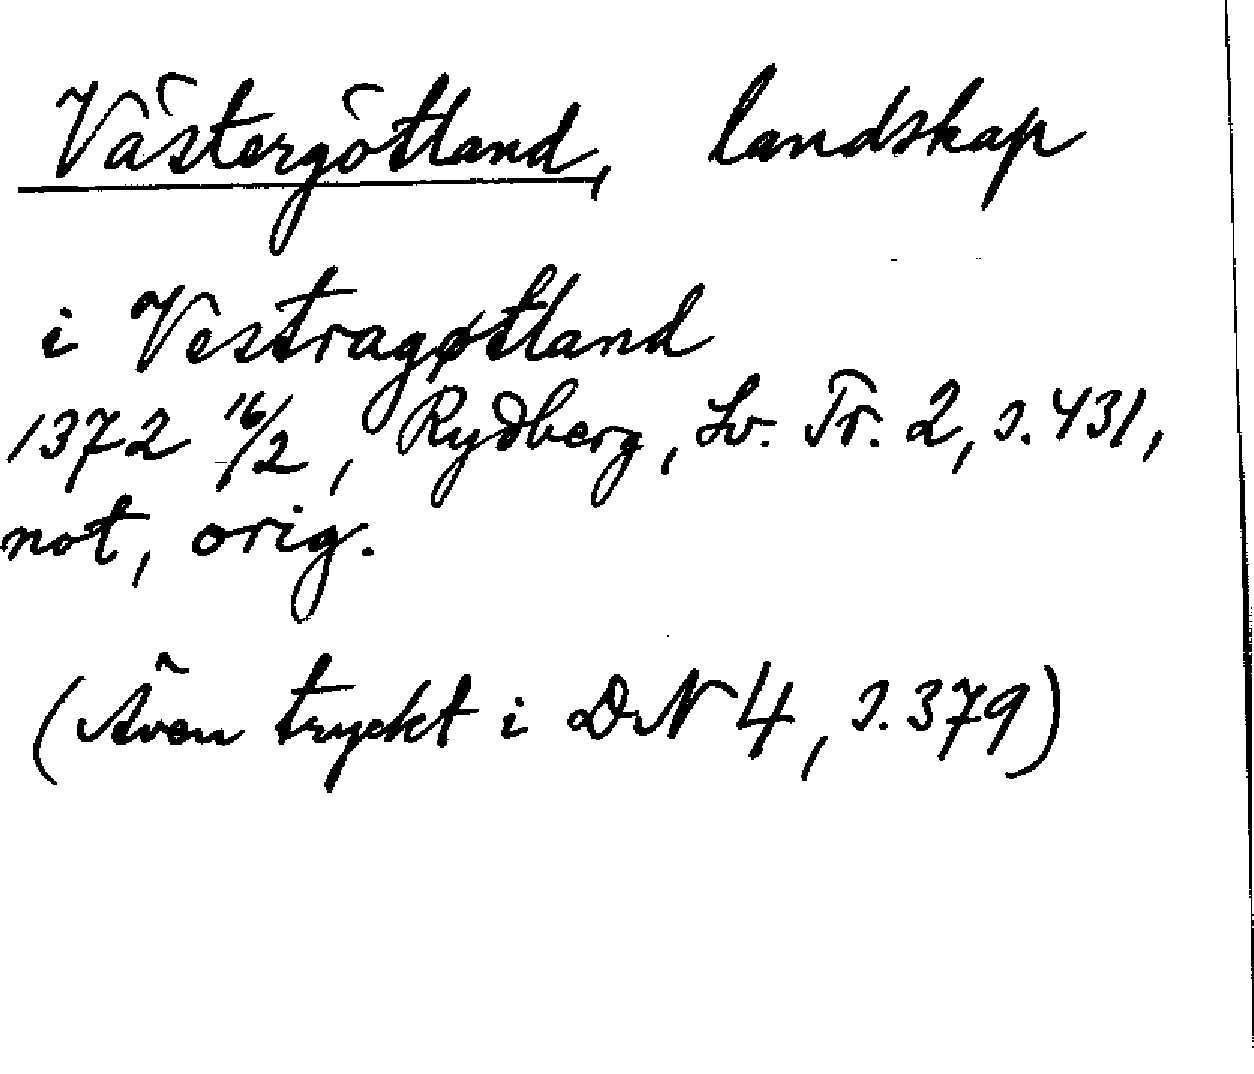 Västergötland, landskap
i Vestragøtland
1372 16/2, Rydberg, Sv. Tr. 2, s. 431,
not, orig.
(Även tryckt i DN 4, s. 379)